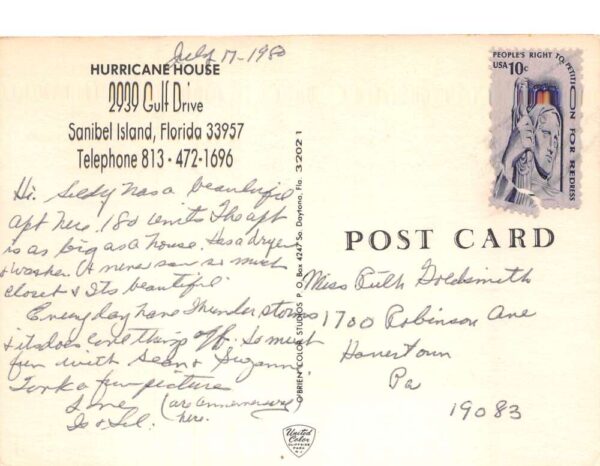 July 17-1980
HURRICANE HOUSE
2939 Gulf Drive
Sanibel Island, Florida 33957
Telephone 813 - 472-1696
Hi. has a beautiful
apt here. 180 units The apt
is as big as a house. Has a dryer
& washer. never saw so much
closet & Its beautiful.
Every day have thunder storms
& it does cool things off. So much
fun with Sean & Suzanne.
Took a few pictures
(are anniversary
here.
O'BRIEN COLOR STUDIOS P. O. Box 4247 So. Daytona, Fla. 32021
PEOPLE'S RIGHT TO PETITION FOR REDRESS
USA 10c
POST CARD
Miss Ruth Goldsmith
1700 Robinson Ave
Havertown
Pa
19083
United
Color